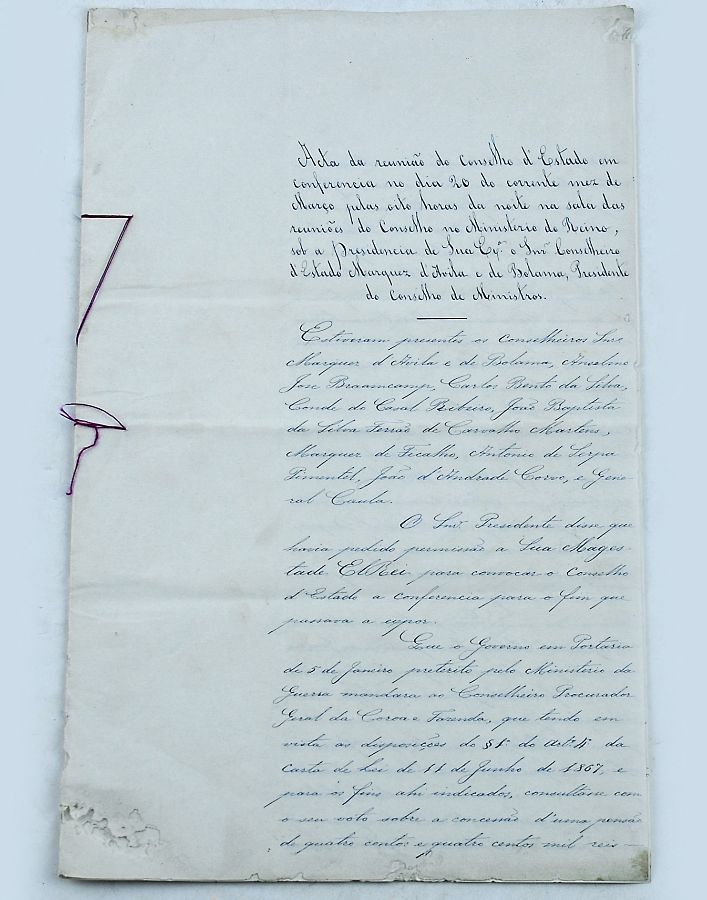 Acta da reunião do Conselho d'Estado em
conferencia no dia 20 do corrente mez de
Março pelas oito horas da noite na sala das
reuniões do Conselho no Ministerio do Reino,
sob a Presidencia de Sua Exª. o Snr. Conselheiro
d'Estado Marquez d'Avila e de Bolama, Presidente
do Conselho de Ministros.
Estiveram presentes os Conselheiros Snrs.
Marquez d'Avila e de Bolama, Anselmo
Jose Braamcamp, Carlos Bento da Silva,
Conde do Casal Ribeiro, João Baptista
da Silva Ferrão de Carvalho Martens,
Marquez de Ficalho, Antonio de Serpa
Pimentel, João d'Andrade Corvo, e Gene
ral Caula.
O Snr. Presidente disse que
havia pedido permissão a Sua Mages-
tade ElRei para convocar o Conselho
d'Estado a conferencia para o fim que
passava a expor.
Que o Governo em Portaria
de 5 de Janeiro preterito pelo Ministerio da
Guerra mandara ao Conselheiro Procurador
Geral da Coroa e Fazenda, que tendo em
vista as disposições do § 1º. do artº. 4º. da
carta de Lei de 11 de Junho de 1867, e
para os fins ahi indicados, consultasse com
o seu voto sobre a concessão d'uma pensão
de quatro centos e quatro centos mil reis